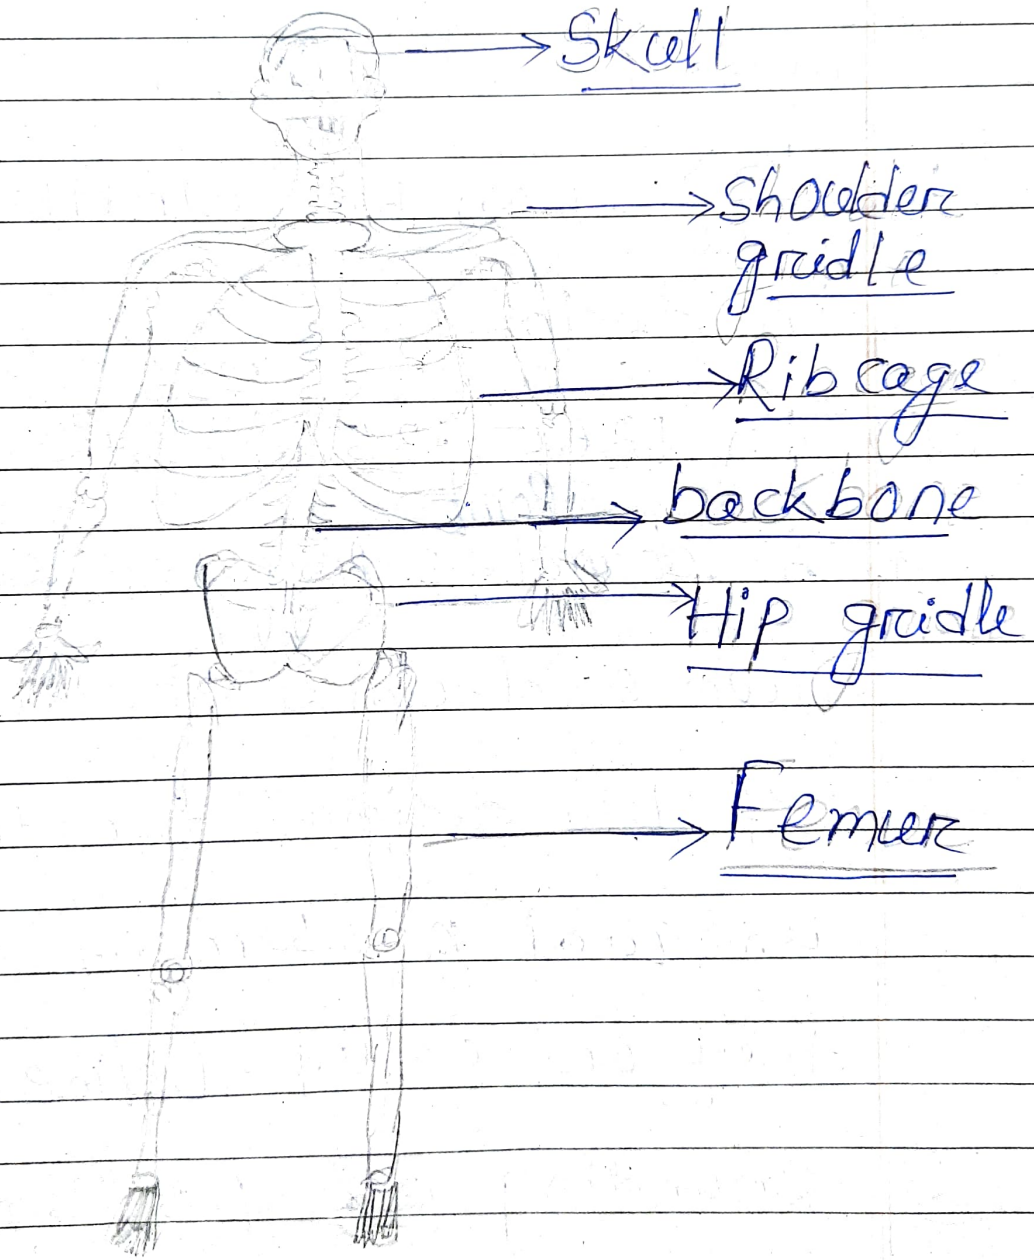 Skull
Shoulder
gridle
Rib cage
backbone
Hip gridle
Femur